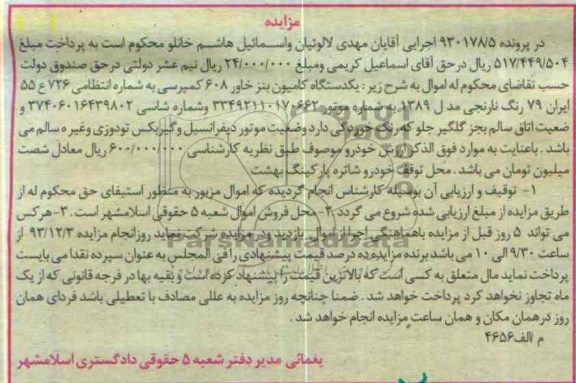 مزایده
در پرونده ۹۳۰۱۷۸/۵ اجرایی آقایان مهدی لالوئیان واسمائیل هاشم خانلو محکوم است به پرداخت مبلغ
۵۱۷/۴۴۹/۵۰۴ ریال درحق آقای اسماعیل کریمی ومبلغ ۲۴/۰۰۰/۰۰۰ ریال نیم عشر دولتی درحق صندوق دولت
حسب تقاضای محکوم له اموال به شرح زیر : یکدستگاه کامیون بنز خاور ۶۰۸ کمپرسی به شماره انتظامی ۷۲۶ ع ۵۵
ایران ۷۹ رنگ نارنجی مدل ۱۳۸۹ به شماره موتور ۳۳۴۹۲۱۱۰۱۷۰۶۶۲ وشماره شاسی ۳۷۴۰۶۰۱۶۴۳۹۸۰۲ و
ضعیت اتاق سالم بجز گلگیر جلو که رنگ خوردگی دارد وضعیت موتور دیفرانسیل وگیربکس تودوزی وغیره سالم می
باشد . باعنایت به موارد فوق الذکر ارزش خودرو موصوف طبق نظریه کارشناسی ۶۰۰/۰۰۰/۰۰۰ ریال معادل شصت
میلیون تومان می باشد . محل توقف خودرو شاتره پارکینگ بهشت
۱- توقیف و ارزیابی آن بوسیله کارشناس انجام گردیده که اموال مزبور به منظور استیفای حق محکوم له از
طریق مزایده از مبلغ ارزیابی شده شروع می گردد ۲- محل فروش اموال شعبه ۵ حقوقی اسلامشهر است . ۳- هرکس
می تواند ۵ روز قبل از مزایده باهماهنگی اجرا از اموال بازدید ودر مزایده شرکت نماید روزانجام مزایده ۹۳/۱۲/۳ از
ساعت ۹/۳۰ الی ۱۰ می باشد برنده مزایده ده درصد قیمت پیشنهادی را فی المجلس به عنوان سپرده نقدا می بایست
پرداخت نماید مال متعلق به کسی است که بالاترین قیمت را پیشنهاد کرده است و بقیه بها در فرجه قانونی که از یک
ماه تجاوز نخواهد کرد پرداخت خواهد شد . ضمنا چنانچه روز مزایده به عللی مصادف با تعطیلی باشد فردای همان
روز درهمان مکان و همان ساعت مزایده انجام خواهد شد .
م الف ۴۶۵۶
یغمائی مدیر دفتر شعبه ۵ حقوقی دادگستری اسلامشهر
ParsNamadData